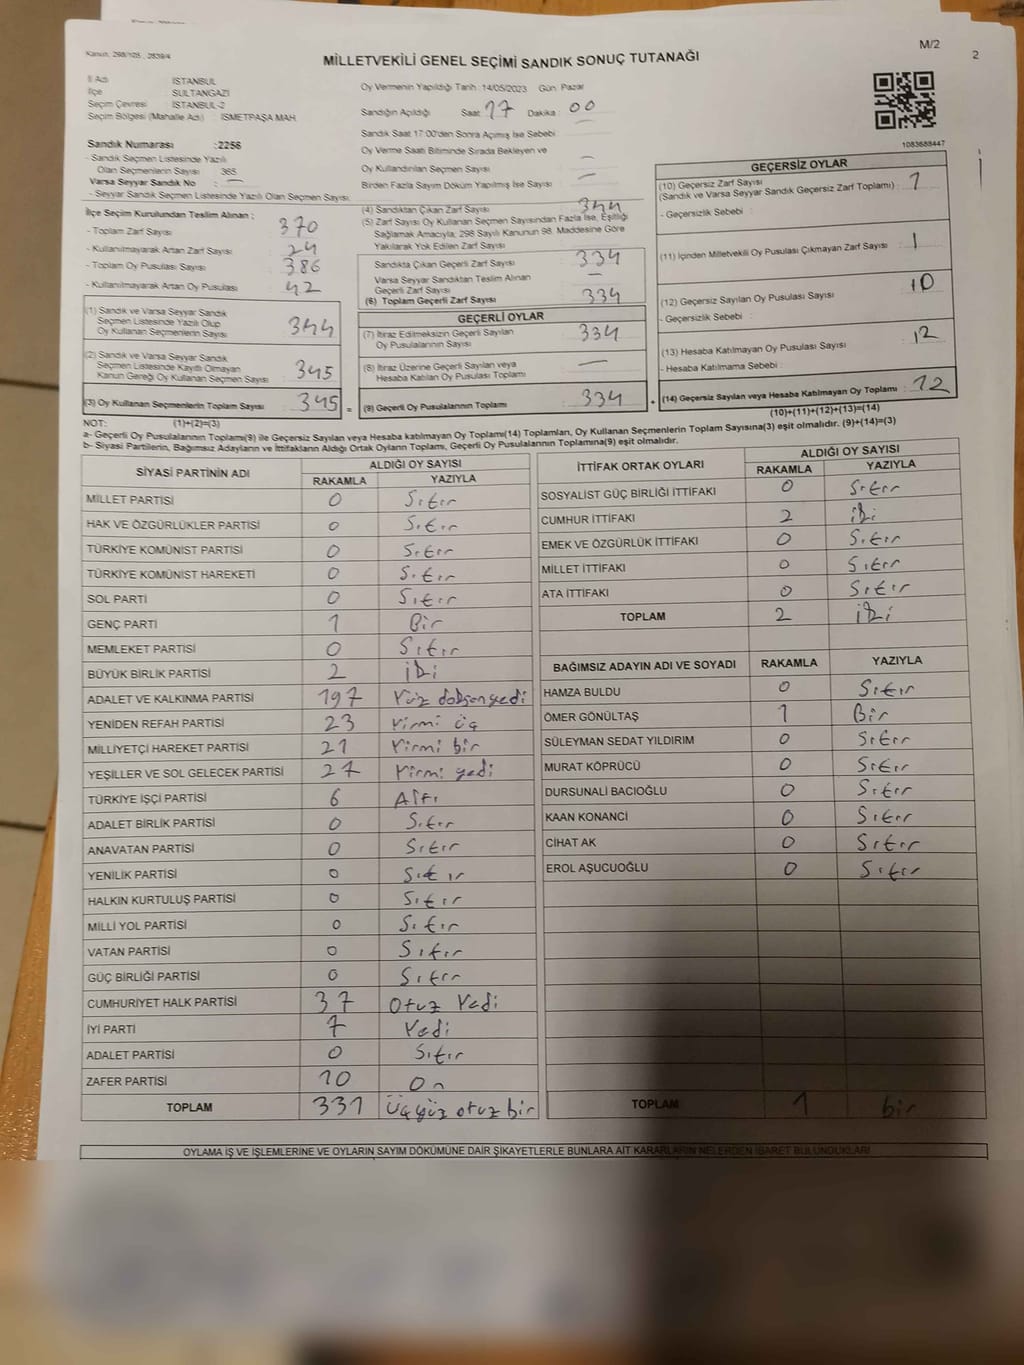 Kanun, 298/105, 2839/4
M/2
2
MİLLETVEKİLİ GENEL SEÇİMİ SANDIK SONUÇ TUTANAĞI
İl Adı İSTANBUL
İlçe SULTANGAZİ
Seçim Çevresi İSTANBUL-2
Seçim Bölgesi (Mahalle Adı) : İSMETPAŞA MAH.
Sandık Numarası :2256
- Sandık Seçmen Listesinde Yazılı
Olan Seçmenlerin Sayısı 365
Varsa Seyyar Sandık No : —
- Seyyar Sandık Seçmen Listesinde Yazılı Olan Seçmen Sayısı
Oy Vermenin Yapıldığı Tarih :14/05/2023 Gün Pazar
Sandığın Açıldığı Saat 17 Dakika 00
Sandık Saat 17:00'den Sonra Açılmış İse Sebebi
Oy Verme Saati Bitiminde Sırada Bekleyen ve
Oy Kullandırılan Seçmen Sayısı —
Birden Fazla Sayım Döküm Yapılmış İse Sayısı —
1083688447
İlçe Seçim Kurulundan Teslim Alınan ;
- Toplam Zarf Sayısı : 370
- Kullanılmayarak Artan Zarf Sayısı : 24
- Toplam Oy Pusulası Sayısı : 386
- Kullanılmayarak Artan Oy Pusulası : 42
(1) Sandık ve Varsa Seyyar Sandık
Seçmen Listesinde Yazılı Olup
Oy Kullanan Seçmenlerin Sayısı : 344
(2) Sandık ve Varsa Seyyar Sandık
Seçmen Listesinde Kayıtlı Olmayan
Kanun Gereği Oy Kullanan Seçmen Sayısı : 345
(3) Oy Kullanan Seçmenlerin Toplam Sayısı : 345 =
(4) Sandıktan Çıkan Zarf Sayısı : 344
(5) Zarf Sayısı Oy Kullanan Seçmen Sayısından Fazla İse, Eşitliği
Sağlamak Amacıyla, 298 Sayılı Kanunun 98. Maddesine Göre
Yakılarak Yok Edilen Zarf Sayısı :
Sandıkta Çıkan Geçerli Zarf Sayısı : 334
Varsa Seyyar Sandıktan Teslim Alınan
Geçerli Zarf Sayısı : —
(6) Toplam Geçerli Zarf Sayısı : 334
GEÇERLİ OYLAR
(7) İtiraz Edilmeksizin Geçerli Sayılan
Oy Pusulalarının Sayısı : 334
(8) İtiraz Üzerine Geçerli Sayılan veya
Hesaba Katılan Oy Pusulası Toplamı : —
(9) Geçerli Oy Pusulalarının Toplamı : 334 +
GEÇERSİZ OYLAR
(10) Geçersiz Zarf Sayısı
(Sandık ve Varsa Seyyar Sandık Geçersiz Zarf Toplamı) : 1
- Geçersizlik Sebebi :
(11) İçinden Milletvekili Oy Pusulası Çıkmayan Zarf Sayısı : 1
(12) Geçersiz Sayılan Oy Pusulası Sayısı : 10
- Geçersizlik Sebebi :
(13) Hesaba Katılmayan Oy Pusulası Sayısı : 12
- Hesaba Katılmama Sebebi :
(14) Geçersiz Sayılan veya Hesaba Katılmayan Oy Toplamı : 12
(10)+(11)+(12)+(13)=(14)
NOT: (1)+(2)=(3)
a- Geçerli Oy Pusulalarının Toplamı(9) ile Geçersiz Sayılan veya Hesaba katılmayan Oy Toplamı(14) Toplamları, Oy Kullanan Seçmenlerin Toplam Sayısına(3) eşit olmalıdır. (9)+(14)=(3)
b- Siyasi Partilerin, Bağımsız Adayların ve İttifakların Aldığı Ortak Oyların Toplamı, Geçerli Oy Pusulalarının Toplamına(9) eşit olmalıdır.
SİYASİ PARTİNİN ADI ALDIĞI OY SAYISI
RAKAMLA YAZIYLA
MİLLET PARTİSİ 0 Sıfır
HAK VE ÖZGÜRLÜKLER PARTİSİ 0 Sıfır
TÜRKİYE KOMÜNİST PARTİSİ 0 Sıfır
TÜRKİYE KOMÜNİST HAREKETİ 0 Sıfır
SOL PARTİ 0 Sıfır
GENÇ PARTİ 1 Bir
MEMLEKET PARTİSİ 0 Sıfır
BÜYÜK BİRLİK PARTİSİ 2 iki
ADALET VE KALKINMA PARTİSİ 197 Yüz doksan yedi
YENİDEN REFAH PARTİSİ 23 Yirmi üç
MİLLİYETÇİ HAREKET PARTİSİ 21 Yirmi bir
YEŞİLLER VE SOL GELECEK PARTİSİ 27 Yirmi yedi
TÜRKİYE İŞÇİ PARTİSİ 6 Altı
ADALET BİRLİK PARTİSİ 0 Sıfır
ANAVATAN PARTİSİ 0 Sıfır
YENİLİK PARTİSİ 0 Sıfır
HALKIN KURTULUŞ PARTİSİ 0 Sıfır
MİLLİ YOL PARTİSİ 0 Sıfır
VATAN PARTİSİ 0 Sıfır
GÜÇ BİRLİĞİ PARTİSİ 0 Sıfır
CUMHURİYET HALK PARTİSİ 37 Otuz Yedi
İYİ PARTİ 7 Yedi
ADALET PARTİSİ 0 Sıfır
ZAFER PARTİSİ 10 On
TOPLAM 331 Üçyüz otuz bir
İTTİFAK ORTAK OYLARI ALDIĞI OY SAYISI
RAKAMLA YAZIYLA
SOSYALİST GÜÇ BİRLİĞİ İTTİFAKI 0 Sıfır
CUMHUR İTTİFAKI 2 iki
EMEK VE ÖZGÜRLÜK İTTİFAKI 0 Sıfır
MİLLET İTTİFAKI 0 Sıfır
ATA İTTİFAKI 0 Sıfır
TOPLAM 2 iki
BAĞIMSIZ ADAYIN ADI VE SOYADI RAKAMLA YAZIYLA
HAMZA BULDU 0 Sıfır
ÖMER GÖNÜLTAŞ 1 Bir
SÜLEYMAN SEDAT YILDIRIM 0 Sıfır
MURAT KÖPRÜCÜ 0 Sıfır
DURSUNALİ BACIOĞLU 0 Sıfır
KAAN KONANCİ 0 Sıfır
CİHAT AK 0 Sıfır
EROL AŞUCUOĞLU 0 Sıfır
TOPLAM 1 bir
OYLAMA İŞ VE İŞLEMLERİNE VE OYLARIN SAYIM DÖKÜMÜNE DAİR ŞİKAYETLERLE BUNLARA AİT KARARLARIN NELERDEN İBARET BULUNDUKLARI